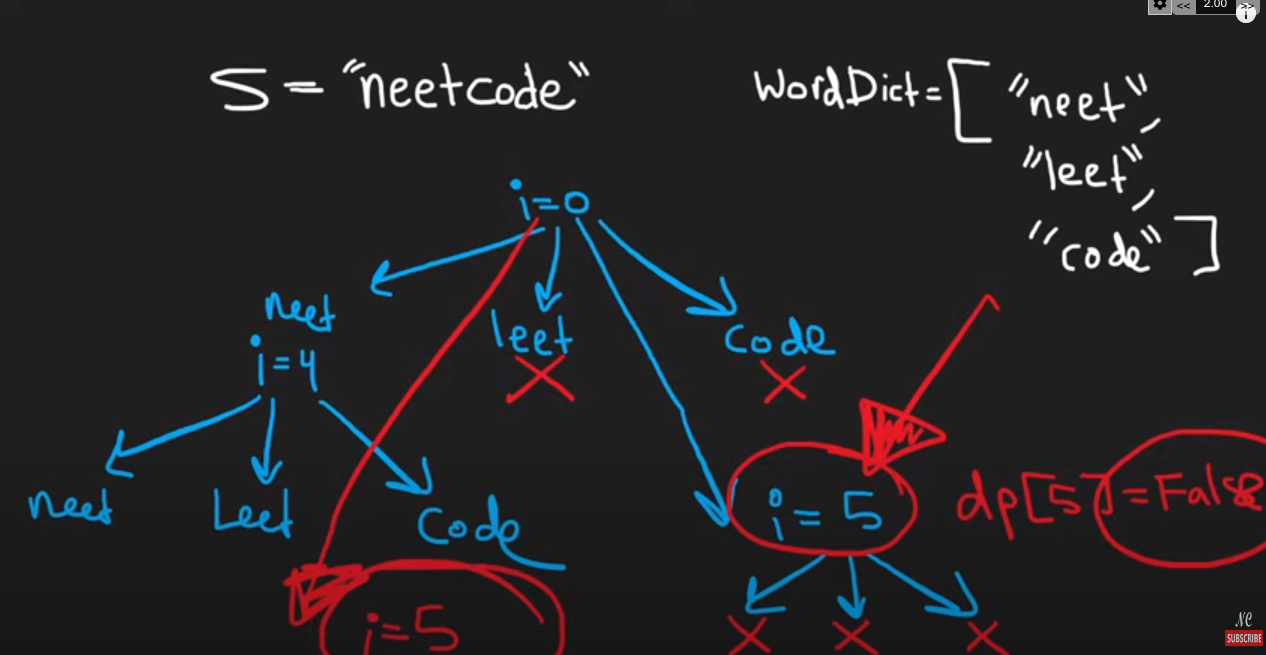 << 2.00 >>
S = "neetcode"
WordDict = [ "neet",
"leet",
"code" ]
i=0
neet
leet
code
i=4
neet
Leet
Code
i = 5
dp[5] = False
i=5
NC
SUBSCRIBE